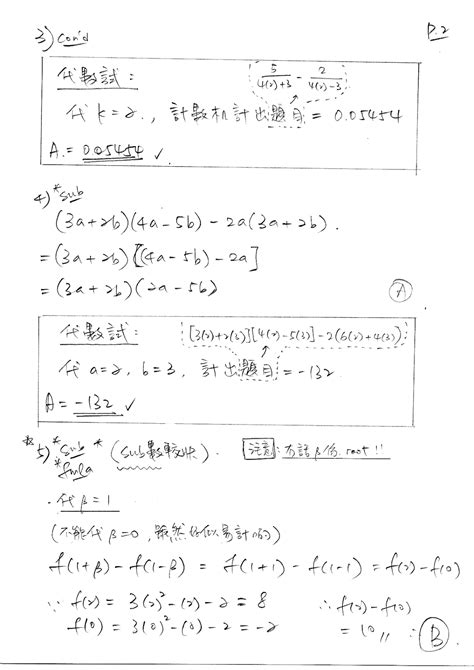 3) con'd
P.2
代數試:
5/(4(2)+3) - 2/(4(2)-3)
代 k=2, 計數机計出題目 = 0.05454
A. = 0.05454 ✓
4) *sub
(3a+2b)(4a-5b) - 2a(3a+2b).
= (3a+2b)[(4a-5b)-2a]
= (3a+2b)(2a-5b)
A
代數試:
[3(2)+2(3)][4(2)-5(3)]-2(6(2)+4(3))
代 a=2, b=3, 計出題目 = -132
A = -132 ✓
*5) *sub * (sub數較快). 注意: 冇話 β 係 root!!
*fmla
· 代 β=1
(不能代 β=0, 雖然好似易計啲)
f(1+β) - f(1-β) = f(1+1) - f(1-1) = f(2) - f(0)
∵ f(2) = 3(2)²-(2)-2 = 8 ∴ f(2)-f(0)
f(0) = 3(0)²-(0)-2 = -2 = 10,, ∴ B